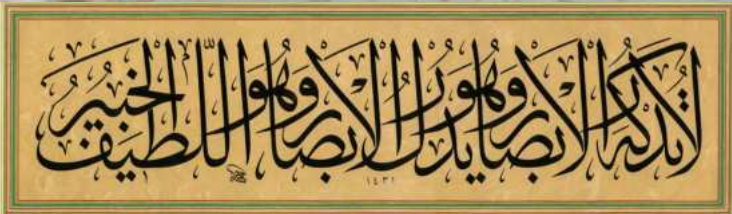 لا تدركه الأبصار وهو يدرك الأبصار وهو اللطيف الخبير
١٤٣١